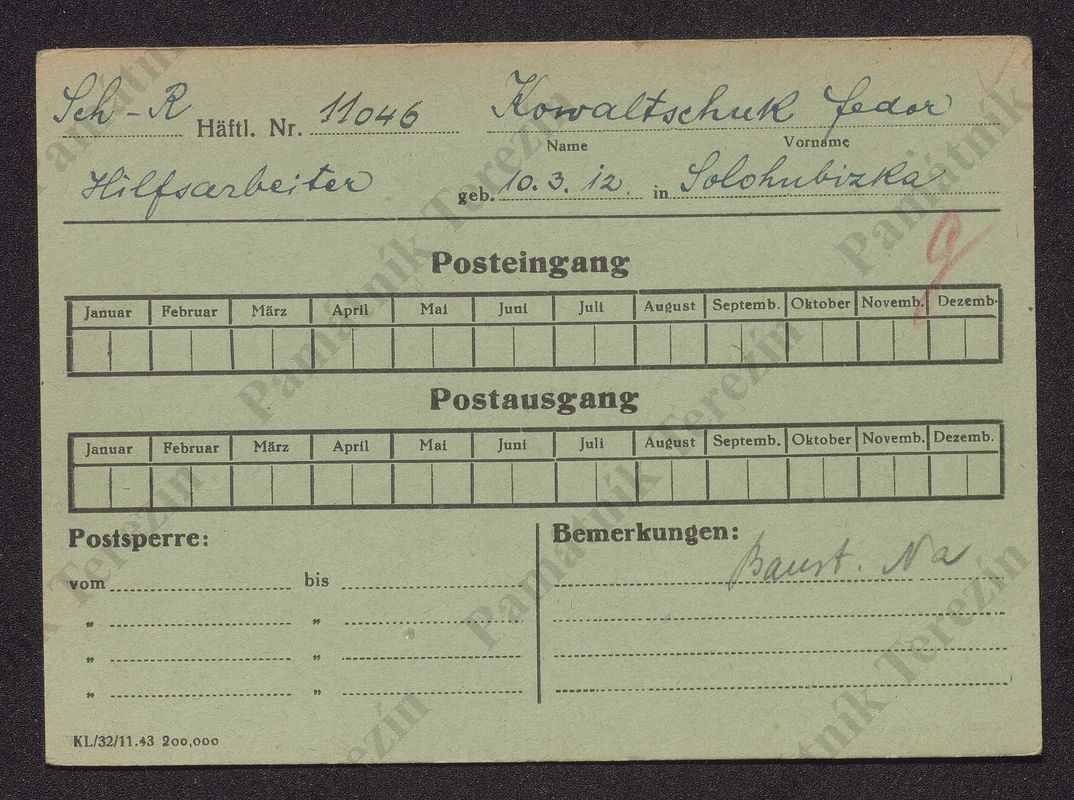 Sch - R Häftl. Nr. 11046 Kowaltschuk Fedor
Name Vorname
Hilfsarbeiter geb. 10. 3. 12. in Solohubizka
Posteingang
Januar Februar März April Mai Juni Juli August Septemb. Oktober Novemb. Dezemb.
Postausgang
Januar Februar März April Mai Juni Juli August Septemb. Oktober Novemb. Dezemb.
Postsperre:
vom bis
„ „
„ „
„ „
Bemerkungen:
Baust. Na
KL/32/11.43 200,000
Památník Terezín